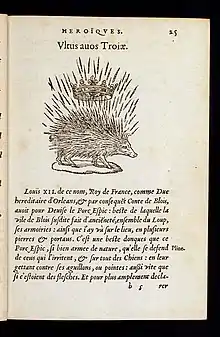 HEROÏQVES. 25
Vltus auos Troiæ.
Louis XII. de ce nom, Roy de France, comme Duc
hereditaire d'Orleans, & par consequẽt Conte de Blois,
auoit pour Deuise le Porc Espic: beste de laquelle la
vile de Blois susdite fait d'anciẽneté, ensemble du Loup,
ses armoiries: ainsi que i'ay vù sur le lieu, en plusieurs
pierres & portaus. C'est une beste donques que ce
Porc Espic, si bien armee de nature, qu'elle se defend Pline.
de ceus qui l'irritent, & sur tout des Chiens: en leur
gettant contre ses aguillons, ou pointes: aussi vite que
si c'estoient des flesches. Et pour plus amplement decla-
b 5 rer